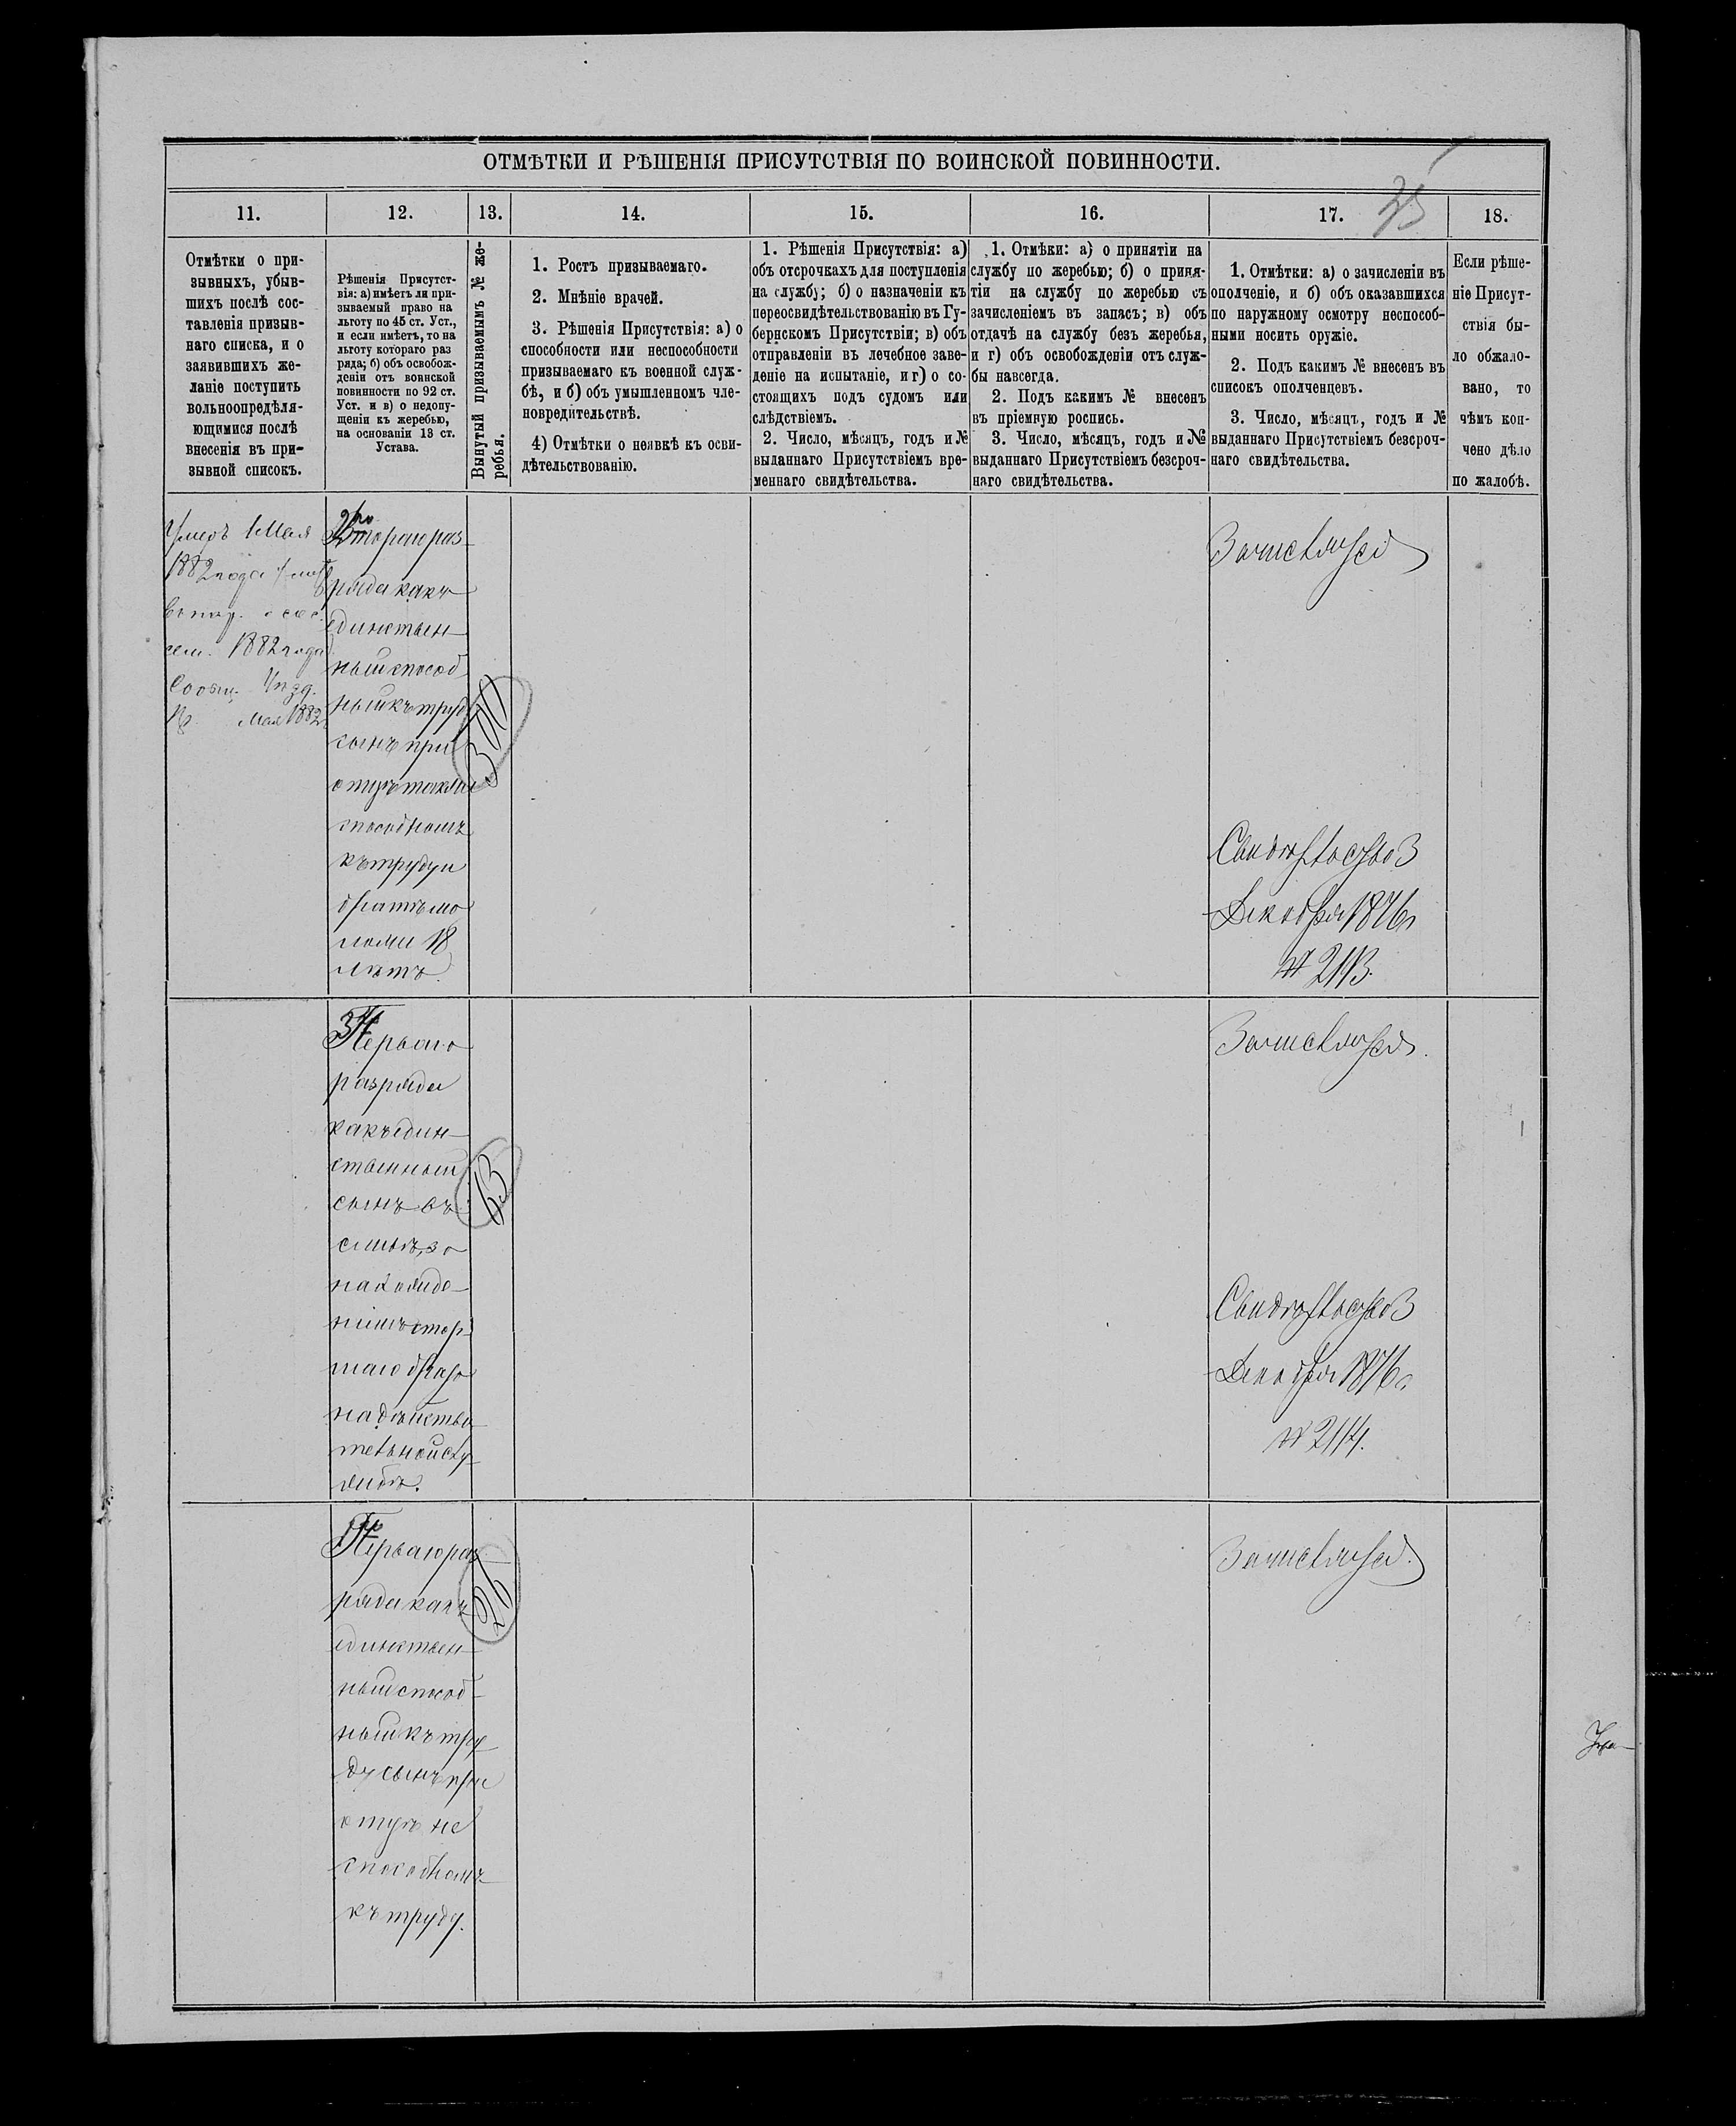 ОТМѢТКИ И РѢШЕНІЯ ПРИСУТСТВІЯ ПО ВОИНСКОЙ ПОВИННОСТИ.
25
11.
12.
13.
14.
15.
16.
17.
18.
Отмѣтки о при-
зывныхъ, убыв-
шихъ послѣ сос-
тавленія призыв-
наго списка, и о
заявившихъ же-
ланіе поступить
вольноопредѣля-
ющимися послѣ
внесенія въ при-
зывной списокъ.
Рѣшенія Присутст-
вія: а) имѣетъ ли при-
зываемый право на
льготу по 45 ст. Уст.,
и если имѣетъ, то на
льготу котораго раз
ряда; б) объ освобож-
деніи отъ воинской
повинности по 92 ст.
Уст. и в) о недопу-
щеніи къ жеребью,
на основаніи 13 ст.
Устава.
Вынутый призываемымъ № же-
ребья.
1. Ростъ призываемаго.
2. Мнѣніе врачей.
3. Рѣшенія Присутствія: а) о
способности или неспособности
призываемаго къ военной служ-
бѣ, и б) объ умышленномъ чле-
новредительствѣ.
4) Отмѣтки о неявкѣ къ осви-
дѣтельствованію.
1. Рѣшенія Присутствія: а)
объ отсрочкахъ для поступленія
на службу; б) о назначеніи къ
переосвидѣтельствованію въ Гу-
бернскомъ Присутствіи; в) объ
отправленіи въ лечебное заве-
деніе на испытаніе, и г) о со-
стоящихъ подъ судомъ или
слѣдствіемъ.
2. Число, мѣсяцъ, годъ и №
выданнаго Присутствіемъ вре-
меннаго свидѣтельства.
1. Отмѣки: а) о принятіи на
службу по жеребью; б) о приня-
тіи на службу по жеребью съ
зачисленіемъ въ запасъ; в) объ
отдачѣ на службу безъ жеребья,
и г) объ освобожденіи отъ служ-
бы навсегда.
2. Подъ какимъ № внесенъ
въ пріемную роспись.
3. Число, мѣсяцъ, годъ и №
выданнаго Присутствіемъ безсроч-
наго свидѣтельства.
1. Отмѣтки: а) о зачисленіи въ
ополченіе, и б) объ оказавшихся
по наружному осмотру неспособ-
ными носить оружіе.
2. Подъ какимъ № внесенъ въ
списокъ ополченцевъ.
3. Число, мѣсяцъ, годъ и №
выданнаго Присутствіемъ безсроч-
наго свидѣтельства.
Если рѣше-
ніе Присут-
ствія бы-
ло обжало-
вано, то
чѣмъ кон-
чено дѣло
по жалобѣ.
Умеръ 1 Мая
1882 года
1882 года
Мая 1882
Втораго раз-
ряда какъ
единствен-
ный способ
ный къ труд
сынъ при
отцѣ также
способномъ
къ труду и
братѣ мо
ложе 18
лѣтъ.
Зачисляется
Свидѣтельство 3
Декабря 1876 г
№ 2113.
Перваго
разряда
какъ един-
ственный
сынъ въ
семьѣ, за
нахожде-
ніемъ стар-
шаго брата
на дѣйстви-
тельной слу-
жбѣ.
63
Зачисляется.
Свидѣтельство 3
Декабря 1876 г.
№ 2114.
Перваго раз-
ряда какъ
единствен-
ный способ-
ный къ тру-
ду сынъ при
отцѣ не
способномъ
къ труду.
26
Зачисляется.